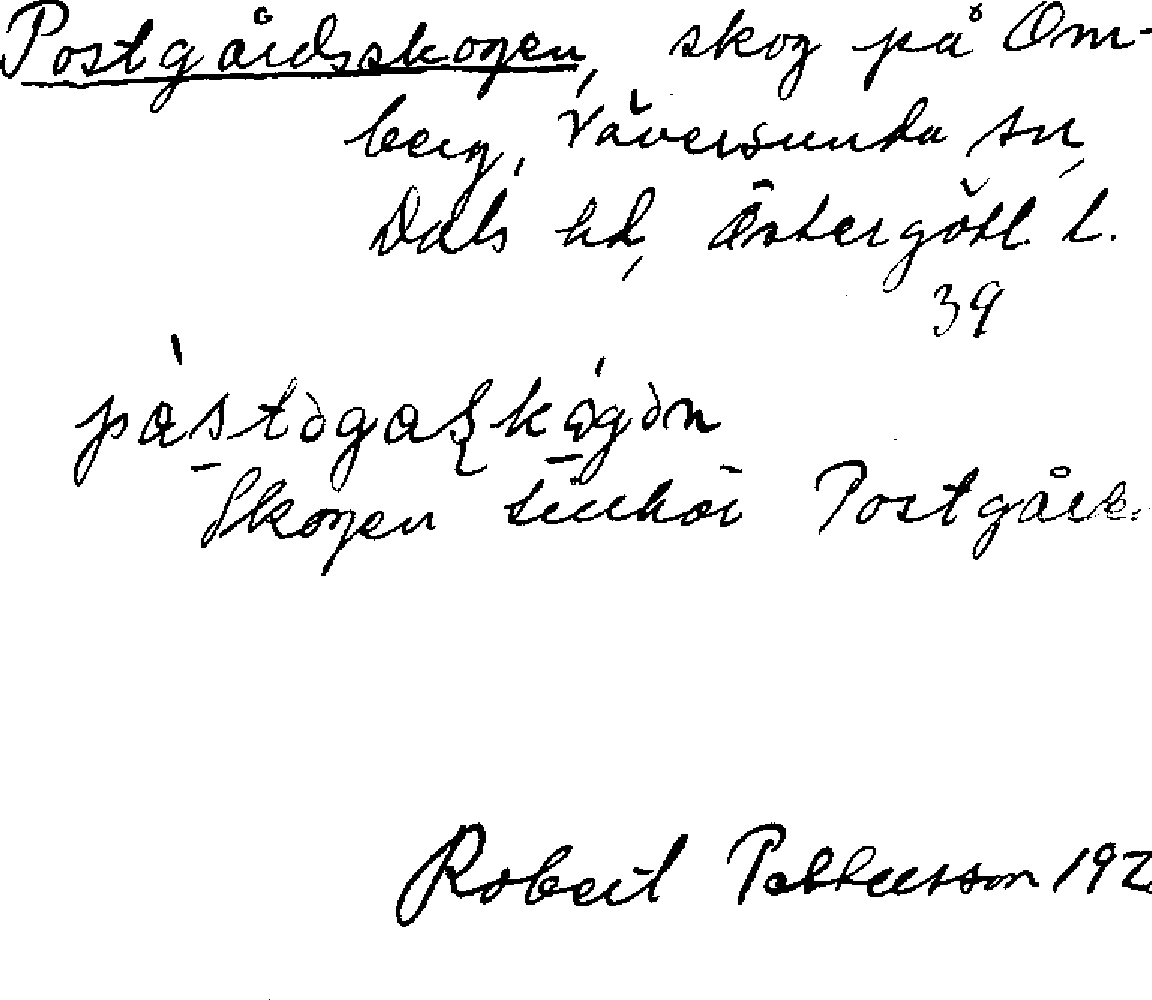 Postgårdsskogen, skog på Om-
berg, Väversunda sn,
Dals hd, Östergötl. l.
39
pàstəgaʂkǿgən
Skogen tillhör Postgård.
Robert Pettersson 192